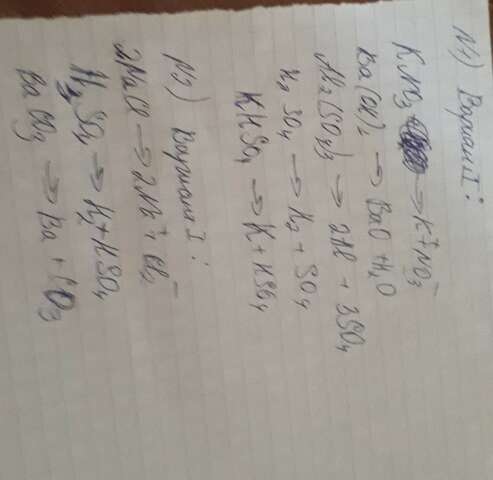 №1) Вариант I:
KNO₃ → K⁺ + NO₃⁻
Ba(OH)₂ → BaO + H₂O
Al₂(SO₄)₃ → 2Al + 3SO₄
H₂SO₄ → H₂ + SO₄
KHSO₄ → K + HSO₄
№2) Вариант I:
2NaCl → 2Na⁺ + Cl₂⁻
H₂SO₄ → H₂ + HSO₄
BaCO₃ → Ba + CO₃